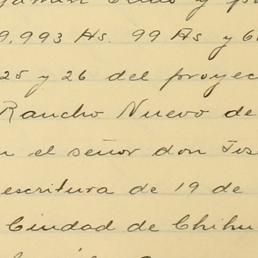 y
9.993 Hs. 99 As y 6
25 y 26 del proyec
Rancho Nuevo de
n el señor don Jos
escritura de 19 de
Ciudad de Chihu